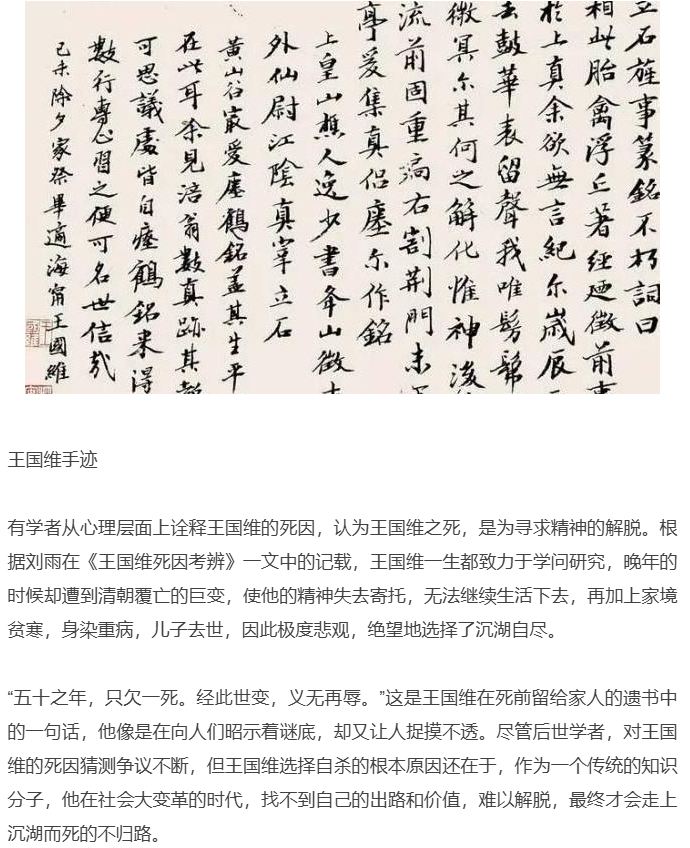 立石旌事篆銘不朽詞曰
相此胎禽浮丘著經廼徵前事
於上真余欲無言紀尔歲辰
去鼓華表留聲我唯髣髴
微冥尔其何之解化惟神
流前固重扃右割荆門未
亭爰集真侣瘞尔作銘
上皇山樵人逸少書夅山徵
外仙尉江陰真宰立石
黄山谷最爱瘞鶴銘蓋其生平
在此耳余見涪翁數真跡其
可思議處皆自瘞鶴銘来得
數行專心習之便可名世信哉
己未除夕家祭畢適海甯王國維
王国维手迹
有学者从心理层面上诠释王国维的死因，认为王国维之死，是为寻求精神的解脱。根
据刘雨在《王国维死因考辨》一文中的记载，王国维一生都致力于学问研究，晚年的
时候却遭到清朝覆亡的巨变，使他的精神失去寄托，无法继续生活下去，再加上家境
贫寒，身染重病，儿子去世，因此极度悲观，绝望地选择了沉湖自尽。
“五十之年，只欠一死。经此世变，义无再辱。”这是王国维在死前留给家人的遗书中
的一句话，他像是在向人们昭示着谜底，却又让人捉摸不透。尽管后世学者，对王国
维的死因猜测争议不断，但王国维选择自杀的根本原因还在于，作为一个传统的知识
分子，他在社会大变革的时代，找不到自己的出路和价值，难以解脱，最终才会走上
沉湖而死的不归路。